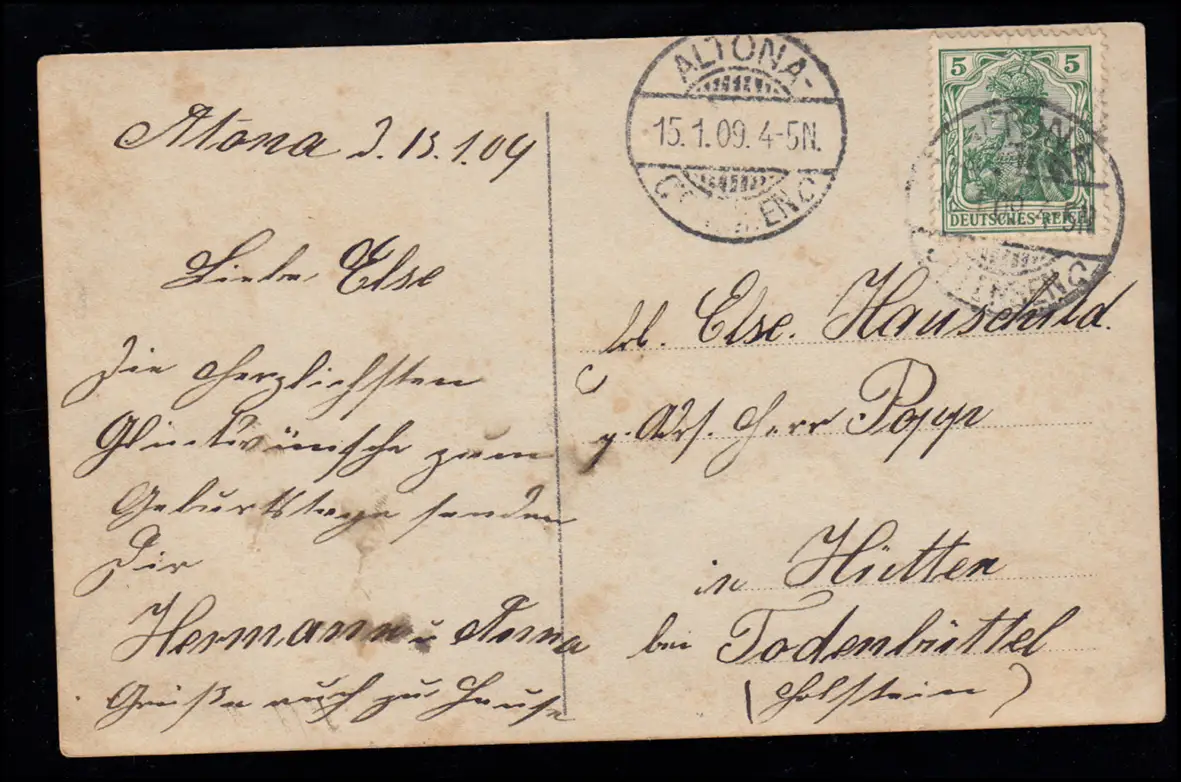 Altona d. 15.1.09
Liebe Else
Die herzlichsten
Glückwünsche zum
Geburtstage senden
Dir
Hermann u Anna
Grüße auch zu Hause
ALTONA-
15.1.09. 4-5N.
5 5
DEUTSCHES REICH
ALTONA-
09. 4-5N
OTTENSEN C
Else. Hauschild.
Adr. Herr Popp
in Hütten
bei Todenbüttel
(Holstein)